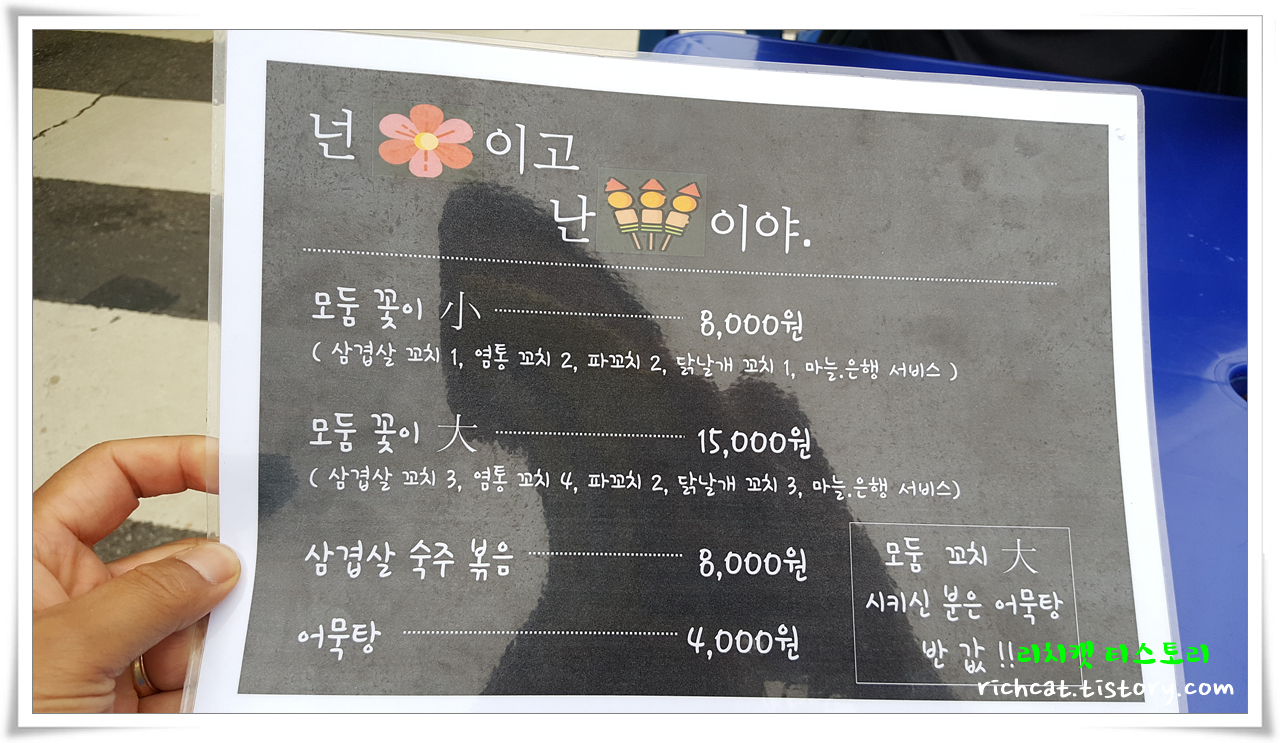 넌 이고
난 이야.
모둠 꽃이 小 8,000원
( 삼겹살 꼬치 1, 염통 꼬치 2, 파꼬치 2, 닭날개 꼬치 1, 마늘.은행 서비스 )
모둠 꽃이 大 15,000원
( 삼겹살 꼬치 3, 염통 꼬치 4, 파꼬치 2, 닭날개 꼬치 3, 마늘.은행 서비스)
삼겹살 숙주 볶음 8,000원
어묵탕 4,000원
모둠 꼬치 大
시키신 분은 어묵탕
반 값 !!
리치캣 티스토리
richcat.tistory.com